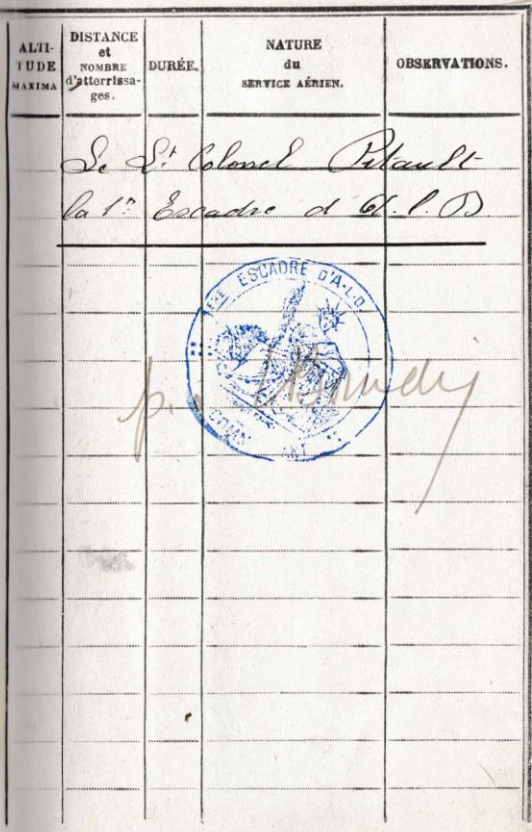 ALTI-
TUDE
MAXIMA
DISTANCE
et
NOMBRE
d'atterrissa-
ges.
DURÉE.
NATURE
du
SERVICE AÉRIEN.
OBSERVATIONS.
Le Lt Colonel Pitault
la 1re Escadre d'A.L.D
1ÈRE ESCADRE D'A.L.D.
p.